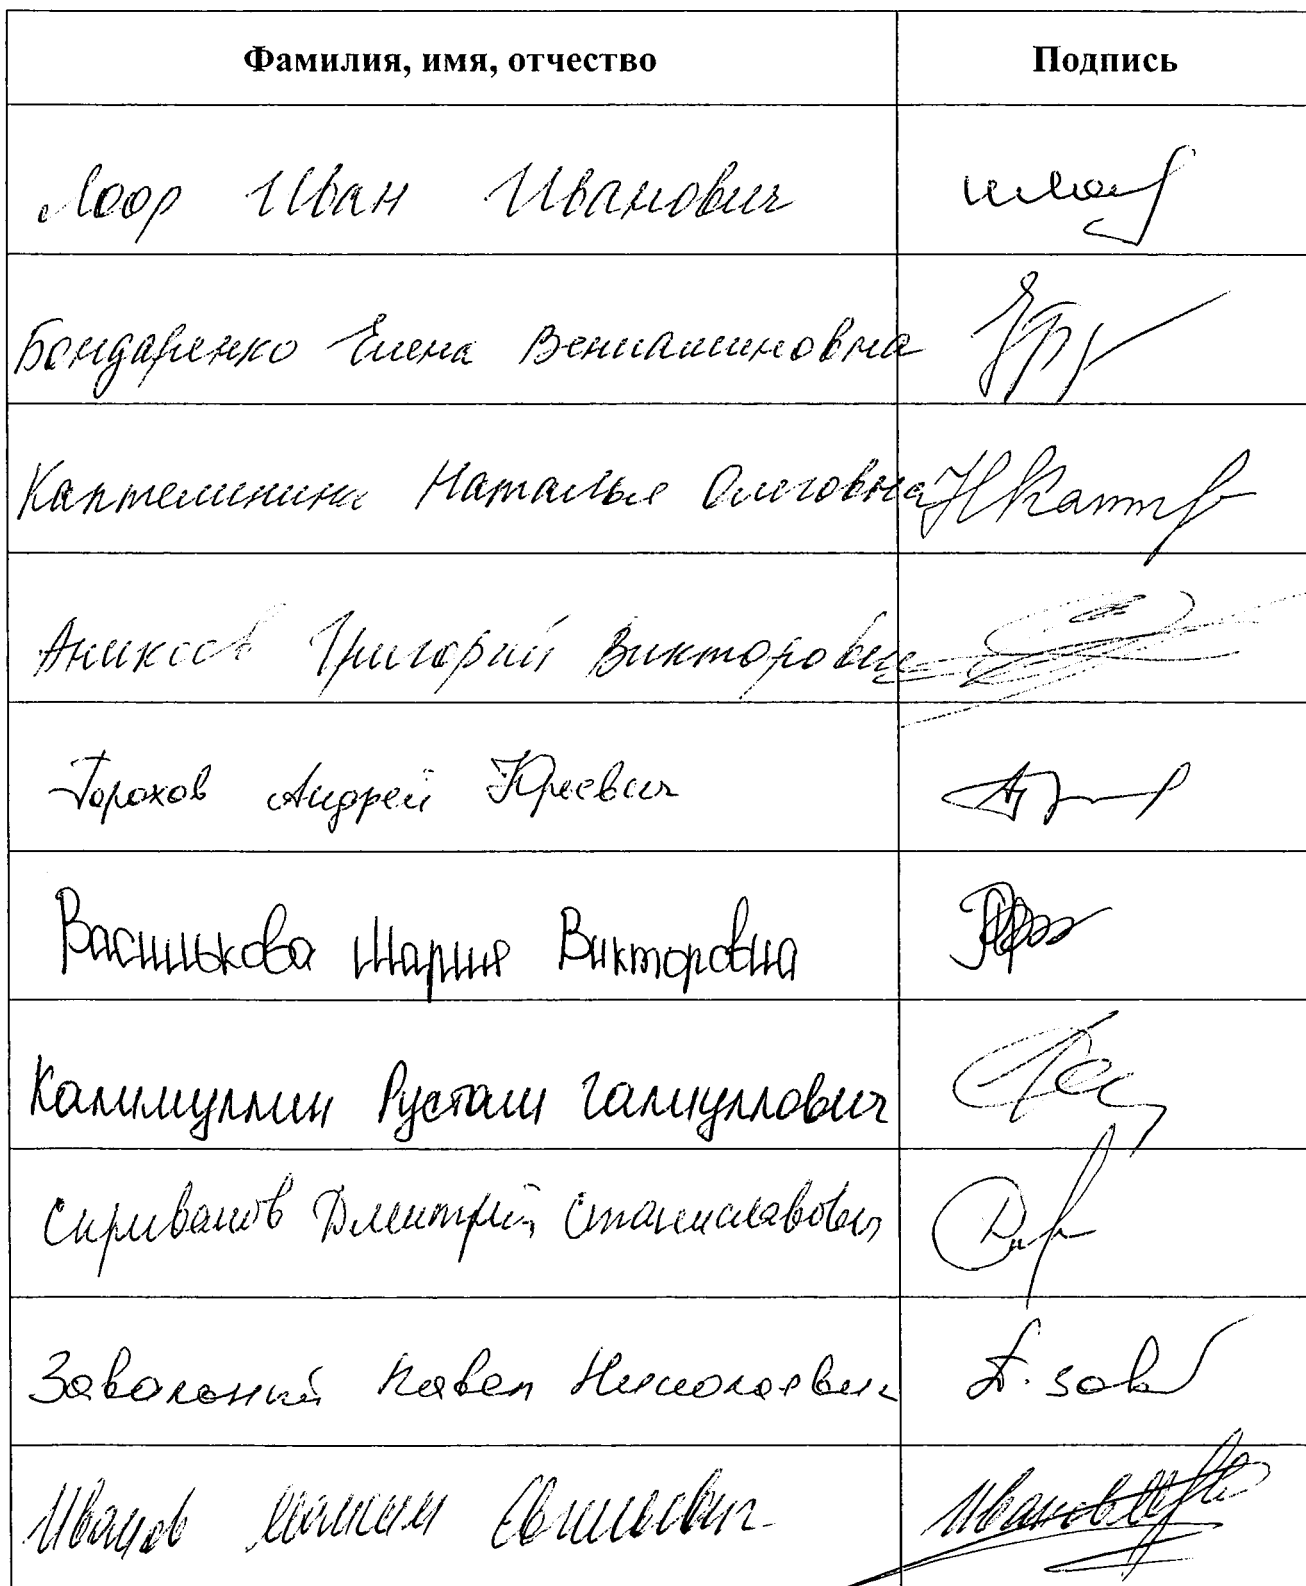 Фамилия, имя, отчество Подпись
Лоор Иван Иванович
Бондаренко Елена Вениаминовна
Каптелинина Наталья Олеговна
Аникеев Григорий Викторович
Горохов Андрей Юрьевич
Василькова Мария Викторовна
Калимуллин Рустам Галиуллович
Скриванов Дмитрий Станиславович
Завальный Павел Николаевич
Иванов Максим Евгеньевич Иванов